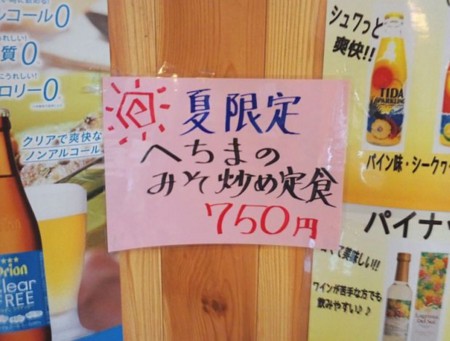 ルコール0
質0
ロリー0
クリアで爽快な
ノンアルコール
Orion
Clear
FREE
夏限定
へちまの
みそ炒め定食
750円
シュワっと
爽快!!
TIDA
SPARKLING
パイン味・シークヮ
パイナッ
て美味しい!!
ワインが苦手な方でも
飲みやすい♪